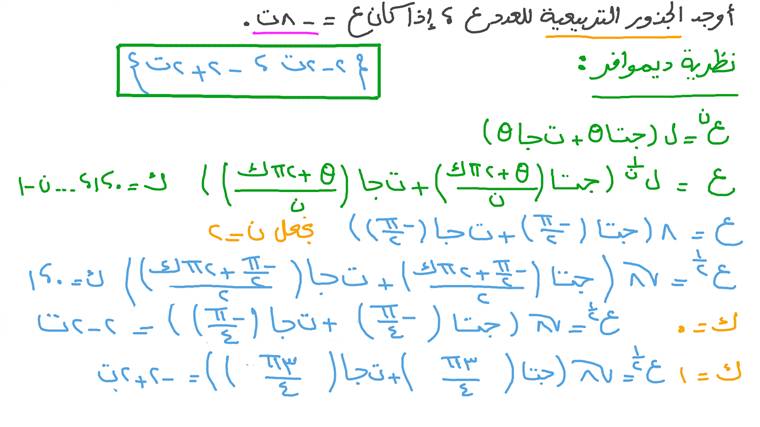 أوجد الجذور التربيعية للعدد ع ؟ إذا كان ع = -٨ت.
نظرية ديموافر:
{٢-٢ت ؟ -٢+٢ت}
ع^ن = ل (جتا θ + ت جا θ)
ع = ل^(١/ن) (جتا ((θ+٢πك)/ن) + ت جا ((θ+٢πك)/ن)) ك=٠،١،...،ن-١
ع = ٨ (جتا (-π/٢) + ت جا (-π/٢)) بجعل ن=٢
ع^(١/٢) = √٨ (جتا ((-π/٢+٢πك)/٢) + ت جا ((-π/٢+٢πك)/٢)) ك=٠،١
ك=٠ ع^(١/٢) = √٨ (جتا (-π/٤) + ت جا (-π/٤)) = ٢-٢ت
ك=١ ع^(١/٢) = √٨ (جتا (٣π/٤) + ت جا (٣π/٤)) = -٢+٢ت